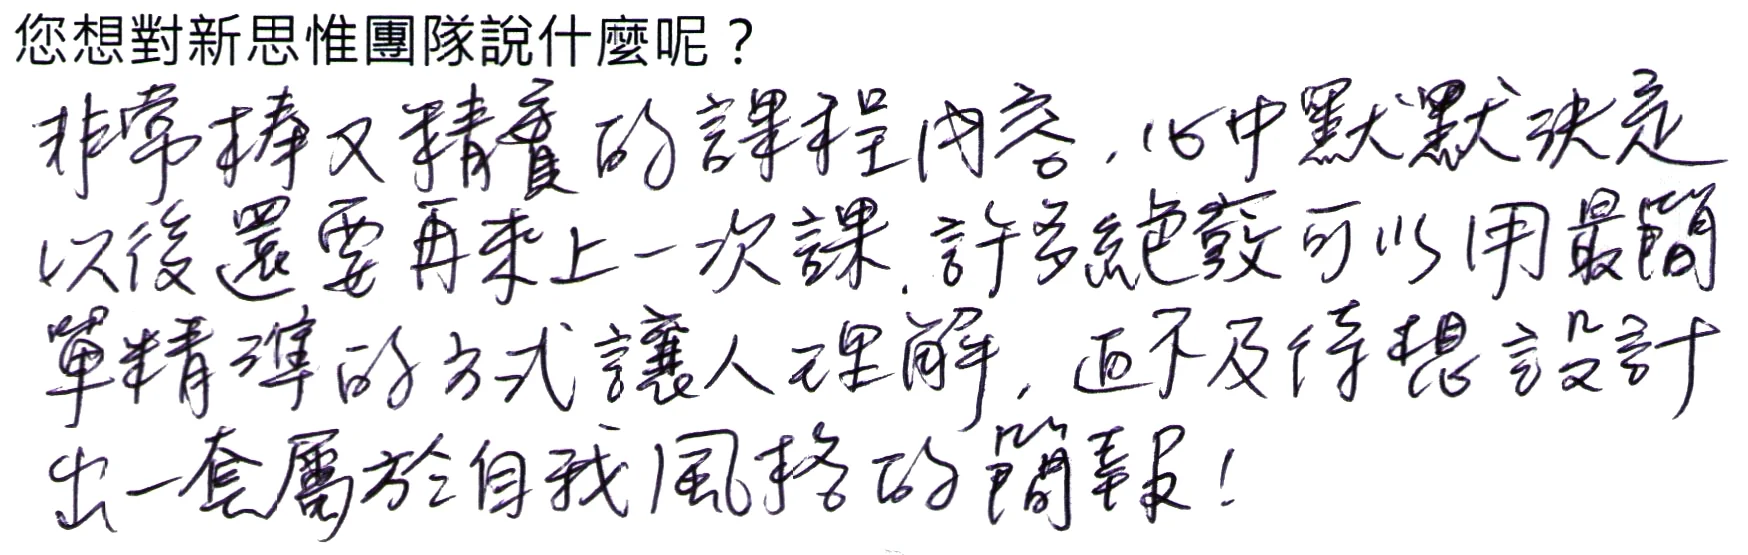 您想對新思惟團隊說什麼呢？
非常棒又精實的課程內容，心中默默決定
以後還要再來上一次課，許多絕竅可以用最簡
單精準的方式讓人理解，迫不及待想設計
出一套屬於自我風格的簡報！